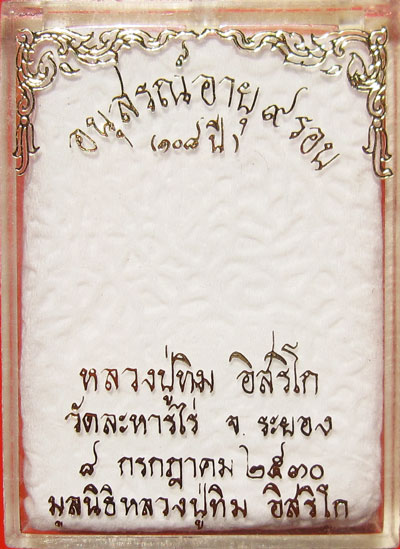 อนุสรณ์อายุ ๙ รอบ
(๑๐๘ ปี)
หลวงปู่ทิม อิสริโก
วัดละหารไร่ จ ระยอง
๘ กรกฎาคม ๒๕๓๐
มูลนิธิหลวงปู่ทิม อิสริโก